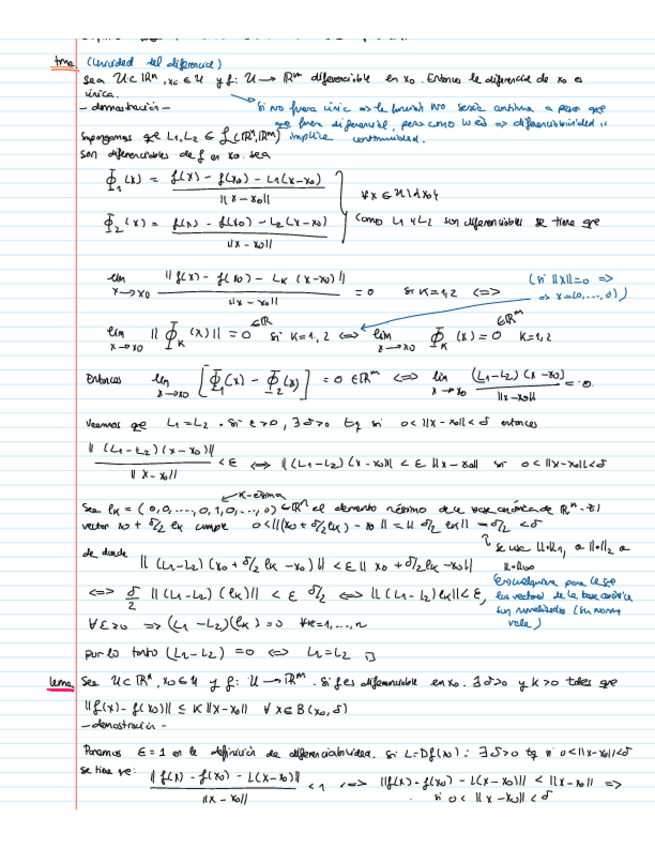 tma. (Unicidad del diferencial)
Sea U⊂ℝⁿ, x₀ ∈ U y f: U → ℝᵐ diferenciable en x₀. Entonces la diferencial de x₀ es
única.
- demostración -
Si no fuera única => la función NO sería continua a pesar que
que fuera diferencial, pero como lo es => diferenciabilidad
implica continuidad.
Supongamos que L₁, L₂ ∈ ℒ(ℝⁿ, ℝᵐ)
son diferenciables de f en x₀. Sea
Φ₁(x) = (f(x) - f(x₀) - L₁(x-x₀)) / ||x - x₀||
∀x ∈ U\{x₀}
Φ₂(x) = (f(x) - f(x₀) - L₂(x-x₀)) / ||x - x₀||
Como L₁ y L₂ son diferenciables se tiene que
lim x→x₀ ||f(x) - f(x₀) - L_K (x-x₀)|| / ||x - x₀|| = 0 si K=1,2 <=>
(si ||x||=0 =>
=> x=(0,...,0))
lim x→x₀ ||Φ_K (x)|| = 0 ∈ℝ si K=1,2 <=> lim x→x₀ Φ_K (x) = 0 ∈ℝᵐ K=1,2
Entonces lim x→x₀ [Φ₁(x) - Φ₂(x)] = 0 ∈ ℝᵐ <=> lim x→x₀ (L₁-L₂)(x-x₀) / ||x-x₀|| = 0.
Veamos que L₁=L₂. Si ε>0, ∃δ>0 tq si 0<||x-x₀||<δ entonces
||(L₁-L₂)(x-x₀)|| / ||x-x₀|| < ε <=> ||(L₁-L₂)(x-x₀)|| < ε ||x-x₀|| si 0<||x-x₀||<δ
K-ésima
Sea e_K = (0,0,...,0,1,0,...,0) ∈ℝⁿ el elemento de la base canónica de ℝⁿ. El
vector x₀ + δ/2 e_K cumple 0<||(x₀+δ/2 e_K) - x₀|| = ||δ/2 e_K|| = δ/2 < δ
se use ||·||₁, o ||·||₂ o
||·||∞
de donde ||(L₁-L₂)(x₀+δ/2 e_K - x₀)|| < ε || x₀+δ/2 e_K - x₀||
<=> δ/2 ||(L₁-L₂)(e_K)|| < ε δ/2 <=> ||(L₁-L₂)e_K|| < ε,
los vectores de la base canónica
son normalizados (su norma
vale)
∀ε>0 => (L₁-L₂)(e_K)=0 ∀K=1,...,n
por lo tanto (L₁-L₂)=0 <=> L₁=L₂ □
lema. Sea U⊂ℝⁿ, x₀∈U y f: U→ℝᵐ. Si f es diferenciable en x₀. ∃δ>0 y K>0 tales que
||f(x)-f(x₀)|| ≤ K||x-x₀|| ∀x∈B(x₀,δ)
- demostración -
Ponemos ε=1 en la definición de diferenciabilidad. Si L=Df(x₀): ∃δ>0 tq si 0<||x-x₀||<δ
se tiene que: ||f(x) - f(x₀) - L(x-x₀)|| / ||x-x₀|| < 1 <=> ||f(x)-f(x₀)-L(x-x₀)|| < ||x-x₀|| =>
si 0<||x-x₀||<δ